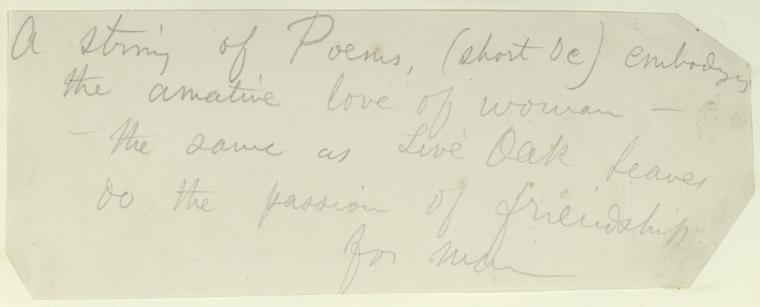 A string of Poems, (short &c) embodying
the amative love of woman —
— the same as Live Oak Leaves
do the passion of friendship
for man